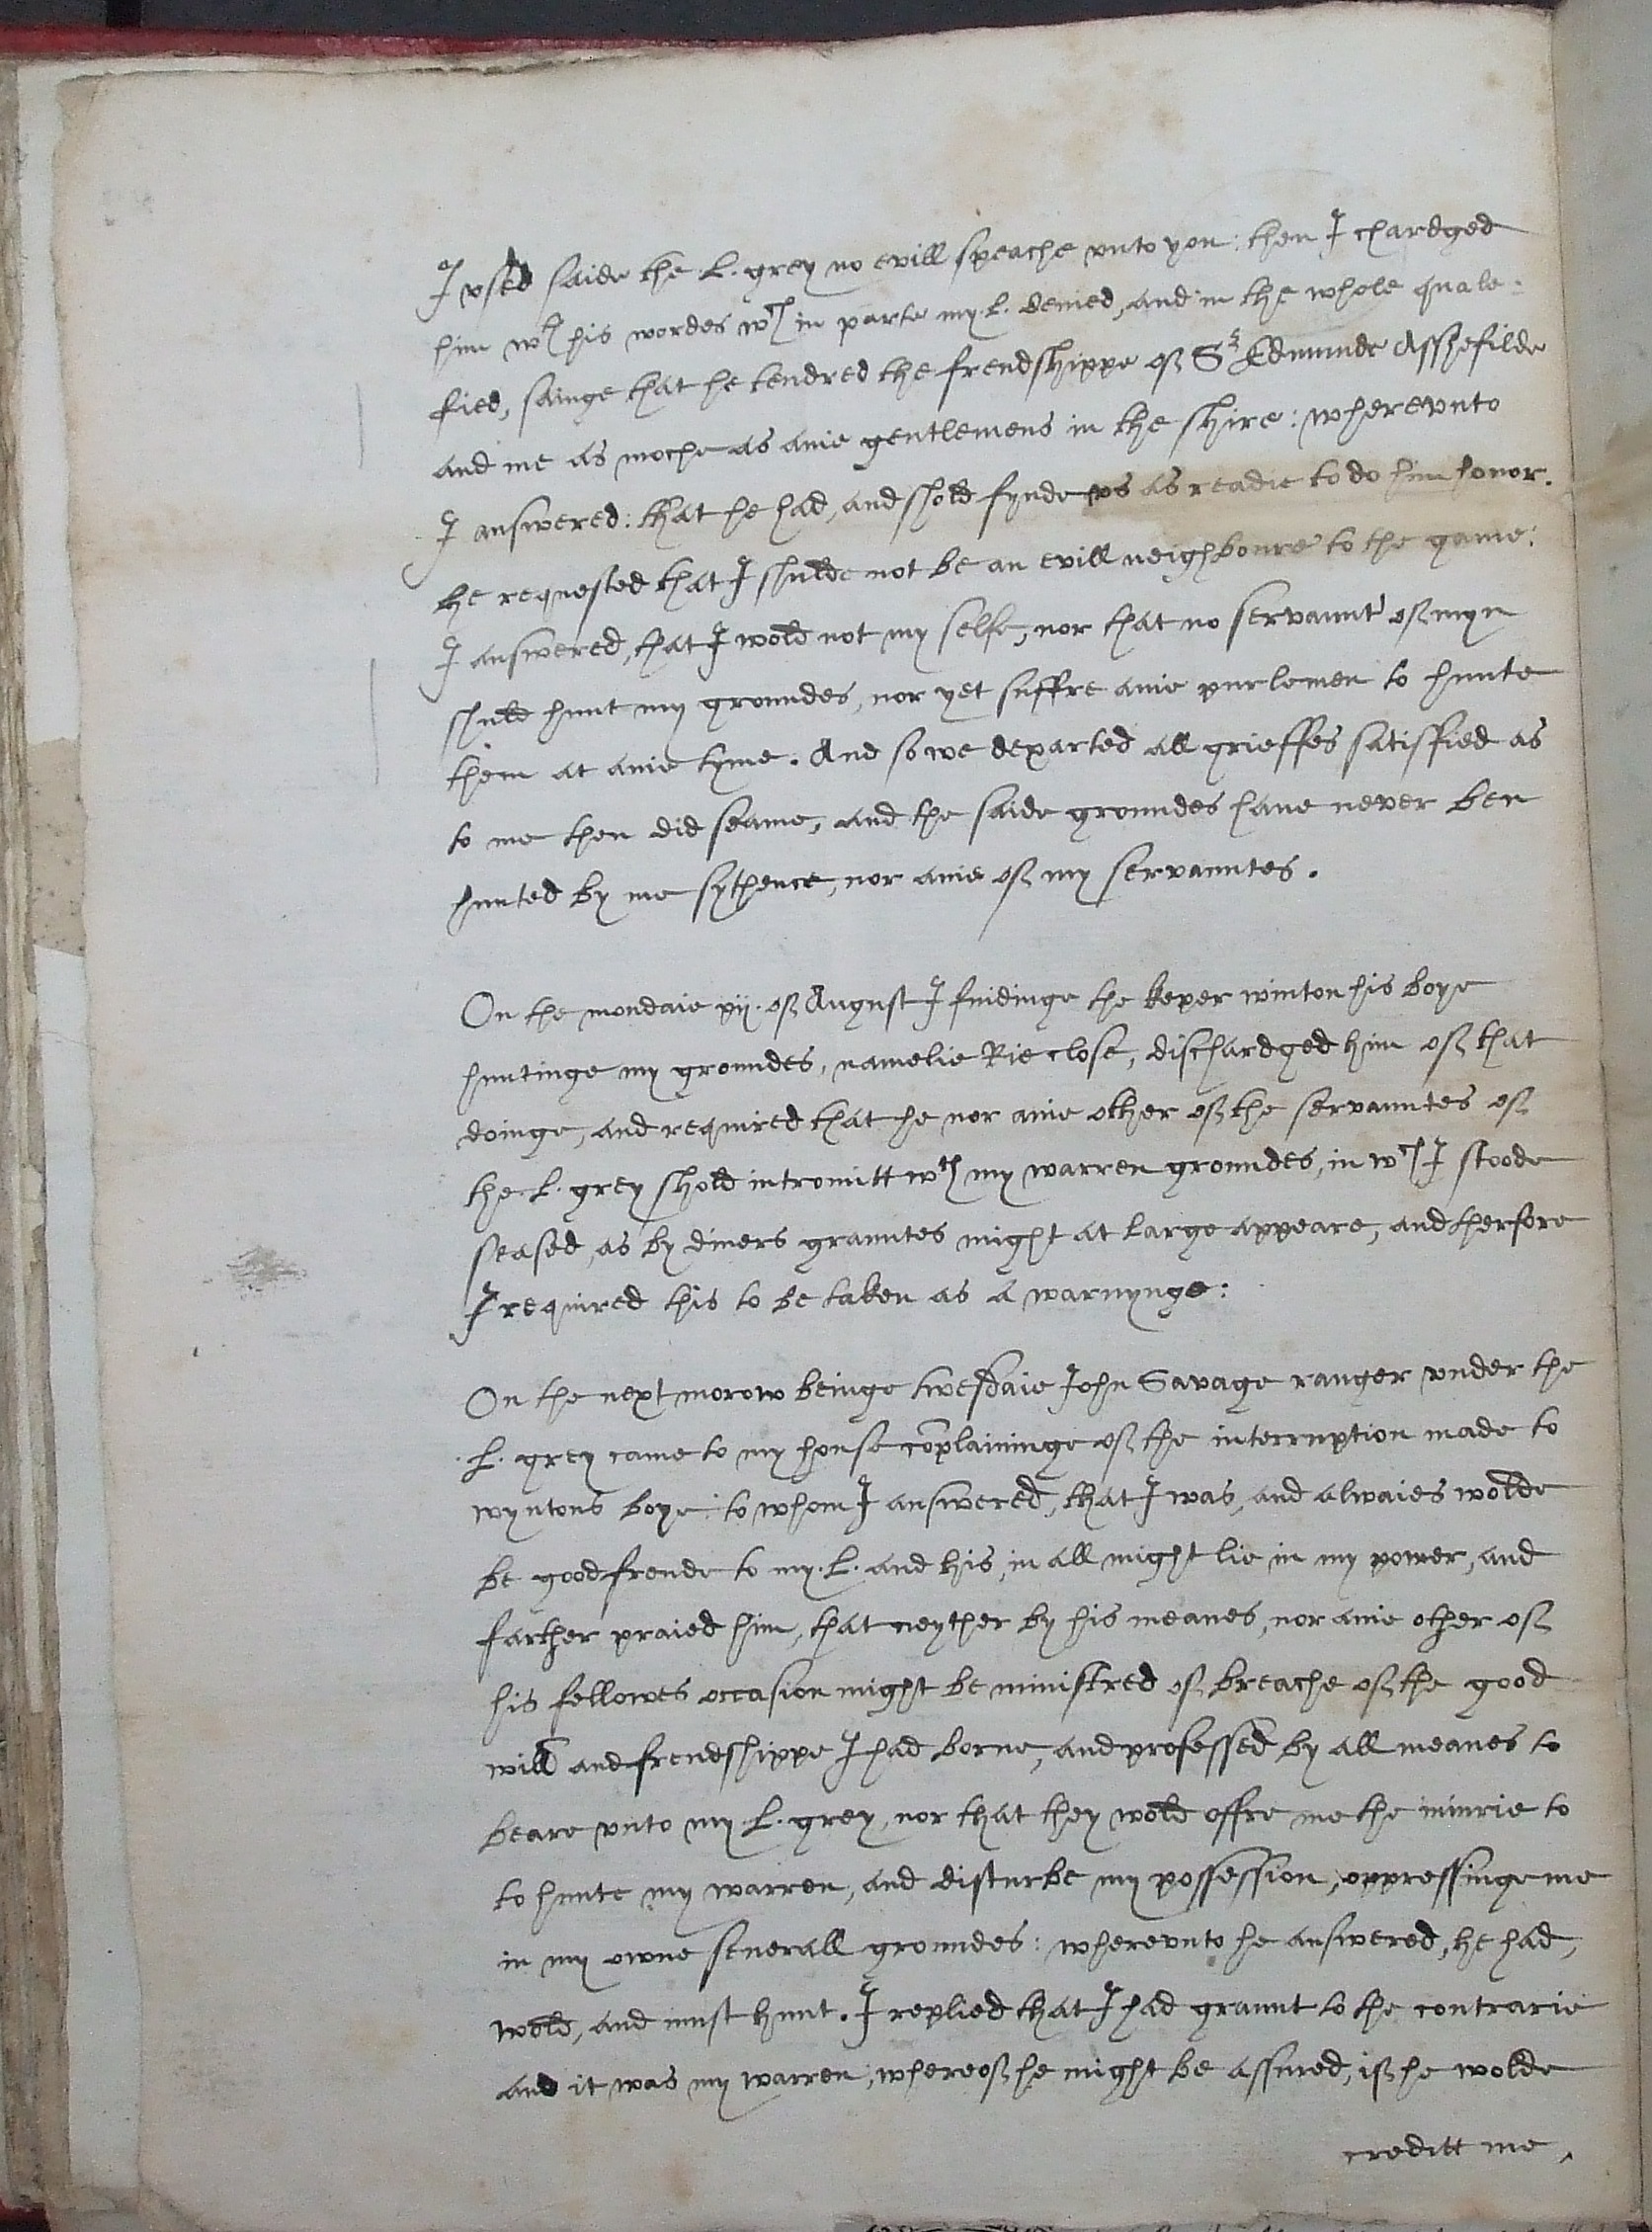 I vsed saide the L. grey no evill speache vnto you: then I chardged
him wth his wordes wch in parte my. L. denied, and in the whole quale:
fied, sainge that he tendred the frendshippe of Sr Edmunde Asshefilde
and me as moche as anie gentlemens in the shire: wherevnto
I answered: that he had, and shold fynde vs as readie to do him honor.
he requested that I shulde not be an evill neighboure to the game:
I answered, that I wold not my selfe, nor that no servaunt of myn
shuld hunt my groundes, nor yet suffre anie purlemen to hunte
them at anie tyme. And so we departed all grieffes satisfied as
to me then did seame, and the saide groundes haue never ben
hunted by me sythence, nor anie of my servauntes.
On the mondaie xij. of August I findinge the keper winton his boye
huntinge my groundes, namelie Rie close, dischardged him of that
doinge, and required that he nor anie other of the servauntes of
the. L. grey shold intromitt wth my warren groundes, in wch I stoode
seased, as by diuers grauntes might at large appeare, and therfore
I required this to be taken as a warnynge:
On the next morow beinge twesdaie John Savage ranger vnder the
. L. grey came to my house cōplaininge of the interruption made to
wyntons boye: to whom I answered, that I was, and alwaies wolde
be good frende to my. L. and his, in all might lie in my power, and
farther praied him, that neyther by his meanes, nor anie other of
his fellowes occasion might be ministred of breache of the good
will and frendshippe I had borne, and professed by all meanes to
beare vnto my. L. grey, nor that they wold offre me the iniurie to
to hunte my warren, and disturbe my possession, oppressinge me
in my owne seuerall groundes: wherevnto he answered, he had,
wold, and must hunt. I replied that I had graunt to the contrarie
and it was my warren, whereof he might be assured, if he wolde
creditt me,